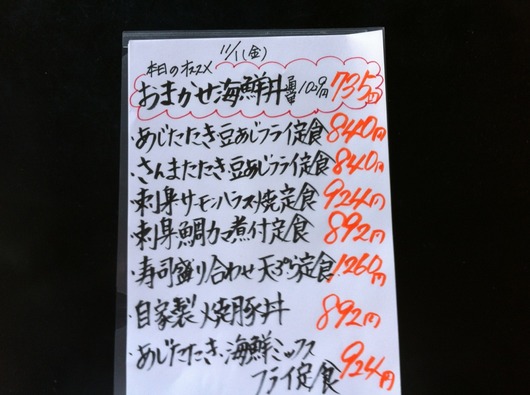 11/1(金)
本日のオススメ
おまかせ海鮮丼 1029円 735円
・あじたたき豆あじフライ定食 840円
・さんまたたき豆あじフライ定食 840円
・刺身サーモンハラス焼定食 924円
・刺身鯛カマ煮付定食 892円
・寿司盛り合わせ天ぷら定食 1260円
・自家製焼豚丼 892円
・あじたたき・海鮮ミックス
フライ定食 924円